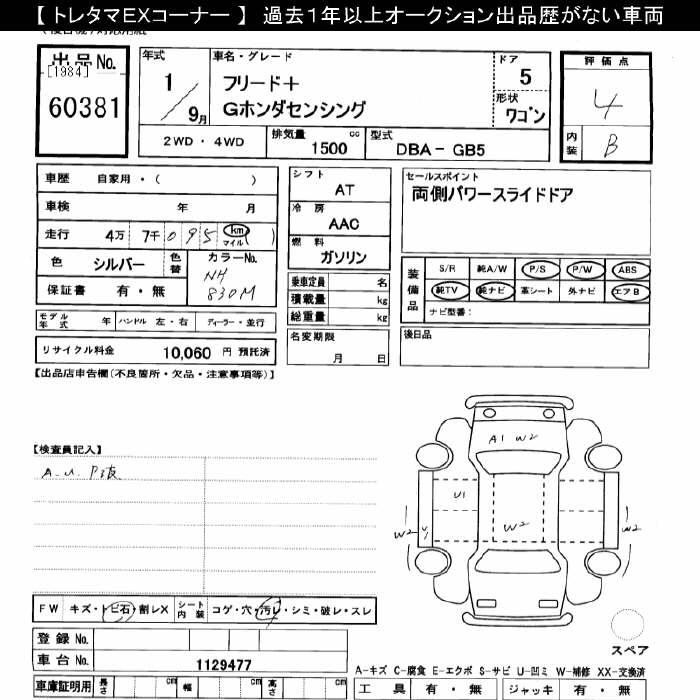 【 トレタマEXコーナー 】 過去1年以上オークション出品歴がない車両
出品No.
[1984]
60381
年式
1
9月
車名・グレード
フリード＋
Gホンダセンシング
ドア
5
形状
ワゴン
2WD ・ 4WD
排気量
1500 cc
型式
DBA－ GB5
評価点
4
内装
B
車歴 自家用・( )
車検 年 月
走行 4万 7千 095 (km マイル)
色 シルバー
色替
カラーNo.
NH
830M
保証書 有・無
モデル年式 年 ハンドル 左・右 ディーラー・並行
リサイクル料金 10,060 円 預託済
シフト
AT
冷房
AAC
燃料
ガソリン
乗車定員 名
積載量 kg
総重量 kg
名変期限
月 日
セールスポイント
両側パワースライドドア
装備品
S/R 純A/W P/S P/W ABS
純TV 純ナビ 革シート 外ナビ エアB
ナビ型番：
後日品
【出品店申告欄(不良箇所・欠品・注意事項等)】
【検査員記入】
A1 W2
U1
W2
W2
W2
FW キズ・トビ石・割レX
シート内装 コゲ・穴・汚レ・シミ・破レ・スレ
登録No.
車台No. 1129477
車庫証明用 長さ cm 幅 cm 高さ cm
スペア
A-キズ C-腐食 E-エクボ S-サビ U-凹ミ W-補修 XX-交換済
工具 有・無 ジャッキ 有・無